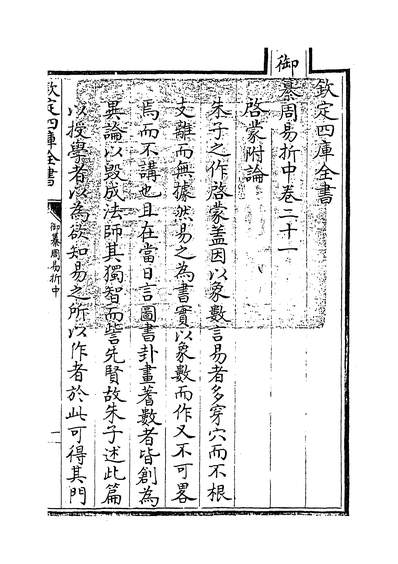 欽定四庫全書
御纂周易折中卷二十一
啓蒙附論
朱子之作啓蒙蓋因以象數言易者多穿穴而不根
支離而無據然易之為書實以象數而作又不可畧
焉而不講也且在當日言圖書卦畫蓍數者皆創為
異論以毀成法師其獨智而訾先賢故朱子述此篇
以授學者以為欲知易之所以作者於此可得其門
欽定四庫全書
御纂周易折中
一